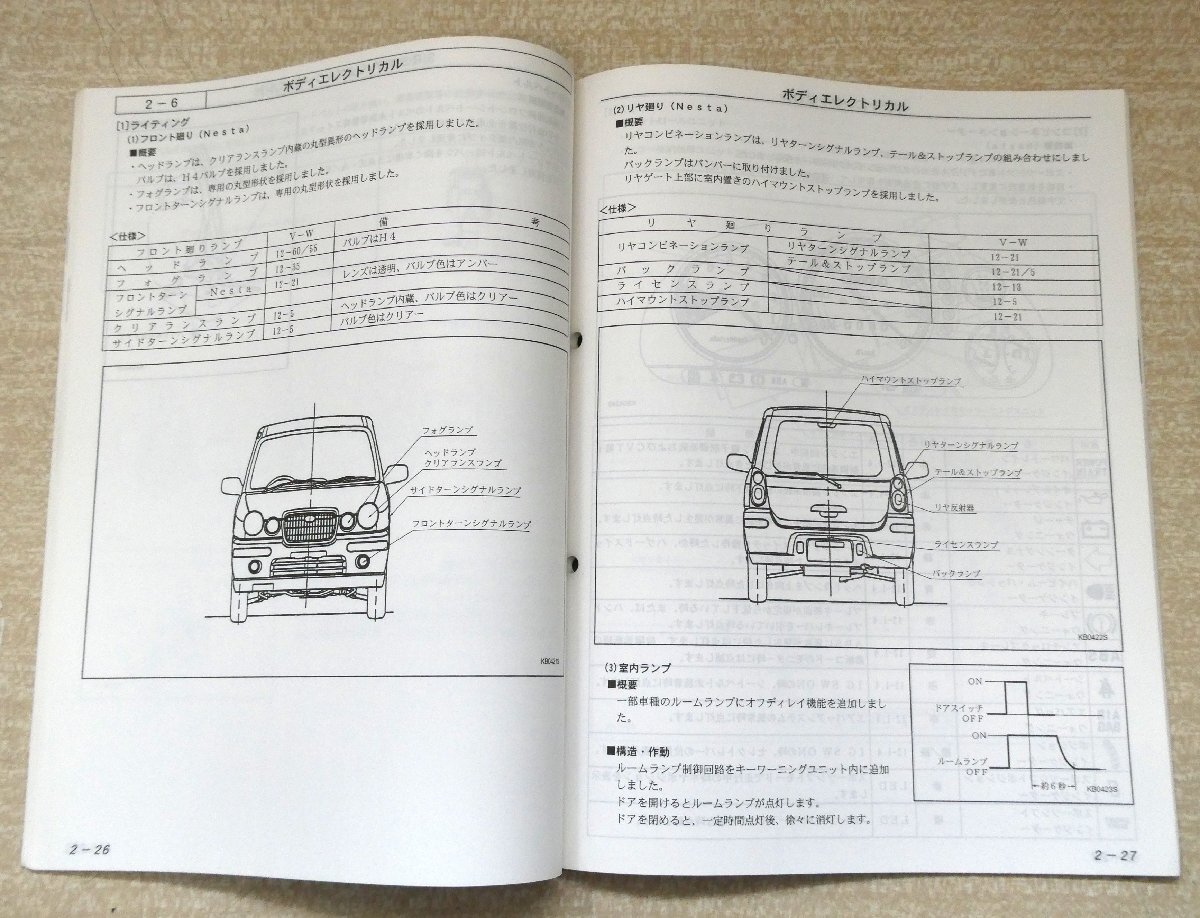 2－6
ボディエレクトリカル
[1]ライティング
(1)フロント廻り(Nesta)
■概要
・ヘッドランプは、クリアランスランプ内蔵の丸型異形のヘッドランプを採用しました。
バルブは、H4バルブを採用しました。
・フォグランプは、専用の丸型形状を採用しました。
・フロントターンシグナルランプは、専用の丸型形状を採用しました。
<仕様>
フロント廻りランプ V－W 備考
ヘッドランプ 12－60/55 バルブはH4
フォグランプ 12－35
フロントターンシグナルランプ Nesta 12－21 レンズは透明、バルブ色はアンバー
クリアランスランプ 12－5 ヘッドランプ内蔵、バルブ色はクリアー
サイドターンシグナルランプ 12－5 バルブ色はクリアー
フォグランプ
ヘッドランプ
クリアランスランプ
サイドターンシグナルランプ
フロントターンシグナルランプ
2－26
ボディエレクトリカル
(2)リヤ廻り(Nesta)
■概要
リヤコンビネーションランプは、リヤターンシグナルランプ、テール＆ストップランプの組み合わせにしまし
た。
バックランプはバンパーに取り付けました。
リヤゲート上部に室内置きのハイマウントストップランプを採用しました。
<仕様>
リヤ廻りランプ V－W
リヤコンビネーションランプ リヤターンシグナルランプ 12－21
テール＆ストップランプ 12－21/5
バックランプ 12－18
ライセンスランプ 12－5
ハイマウントストップランプ 12－21
ハイマウントストップランプ
リヤターンシグナルランプ
テール＆ストップランプ
リヤ反射器
ライセンスランプ
バックランプ
KB0422S
(3)室内ランプ
■概要
一部車種のルームランプにオフディレイ機能を追加しまし
た。
■構造・作動
ルームランプ制御回路をキーワーニングユニット内に追加
しました。
ドアを開けるとルームランプが点灯します。
ドアを閉めると、一定時間点灯後、徐々に消灯します。
ON
ドアスイッチ
OFF
ON
ルームランプ
OFF
約6秒
KB0423S
2－27